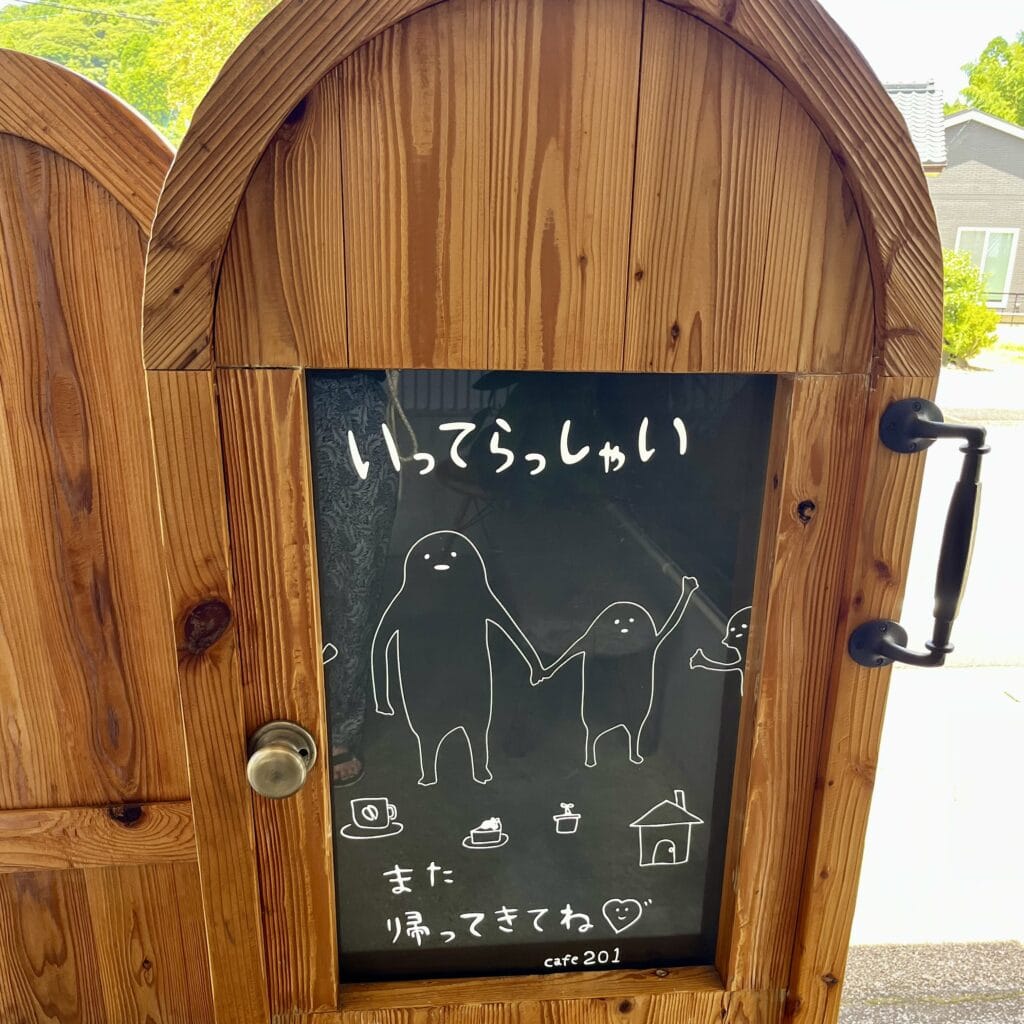 いってらっしゃい
また
帰ってきてね
cafe 201